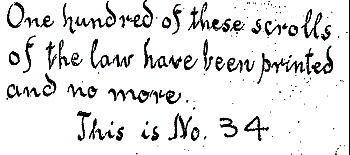 One hundred of these scrolls
of the law have been printed
and no more.
This is No. 34